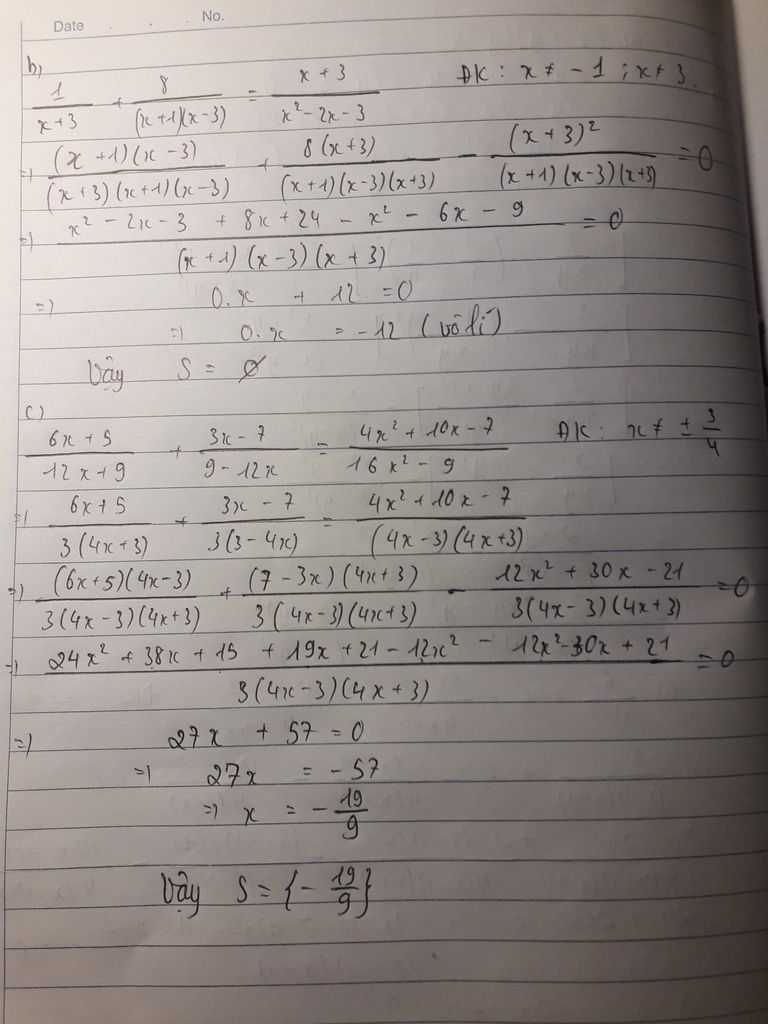 Date . . No.
b)
1/(x+3) + 8/((x+1)(x-3)) = (x+3)/(x²-2x-3) ĐK: x ≠ -1; x ≠ 3.
=> ((x+1)(x-3))/((x+3)(x+1)(x-3)) + (8(x+3))/((x+1)(x-3)(x+3)) - ((x+3)²)/((x+1)(x-3)(x+3)) = 0
=> (x² - 2x - 3 + 8x + 24 - x² - 6x - 9)/((x+1)(x-3)(x+3)) = 0
=> 0.x + 12 = 0
=> 0.x = -12 (vô lí)
Vậy S = ∅
c)
(6x+5)/(12x+9) + (3x-7)/(9-12x) = (4x²+10x-7)/(16x²-9) ĐK: x ≠ ± 3/4
=> (6x+5)/(3(4x+3)) + (3x-7)/(3(3-4x)) = (4x²+10x-7)/((4x-3)(4x+3))
=> ((6x+5)(4x-3))/(3(4x-3)(4x+3)) + ((7-3x)(4x+3))/(3(4x-3)(4x+3)) - (12x²+30x-21)/(3(4x-3)(4x+3)) = 0
=> (24x² + 38x + 15 + 19x + 21 - 12x² - 12x² - 30x + 21)/(3(4x-3)(4x+3)) = 0
=> 27x + 57 = 0
=> 27x = -57
=> x = - 19/9
Vậy S = {- 19/9}